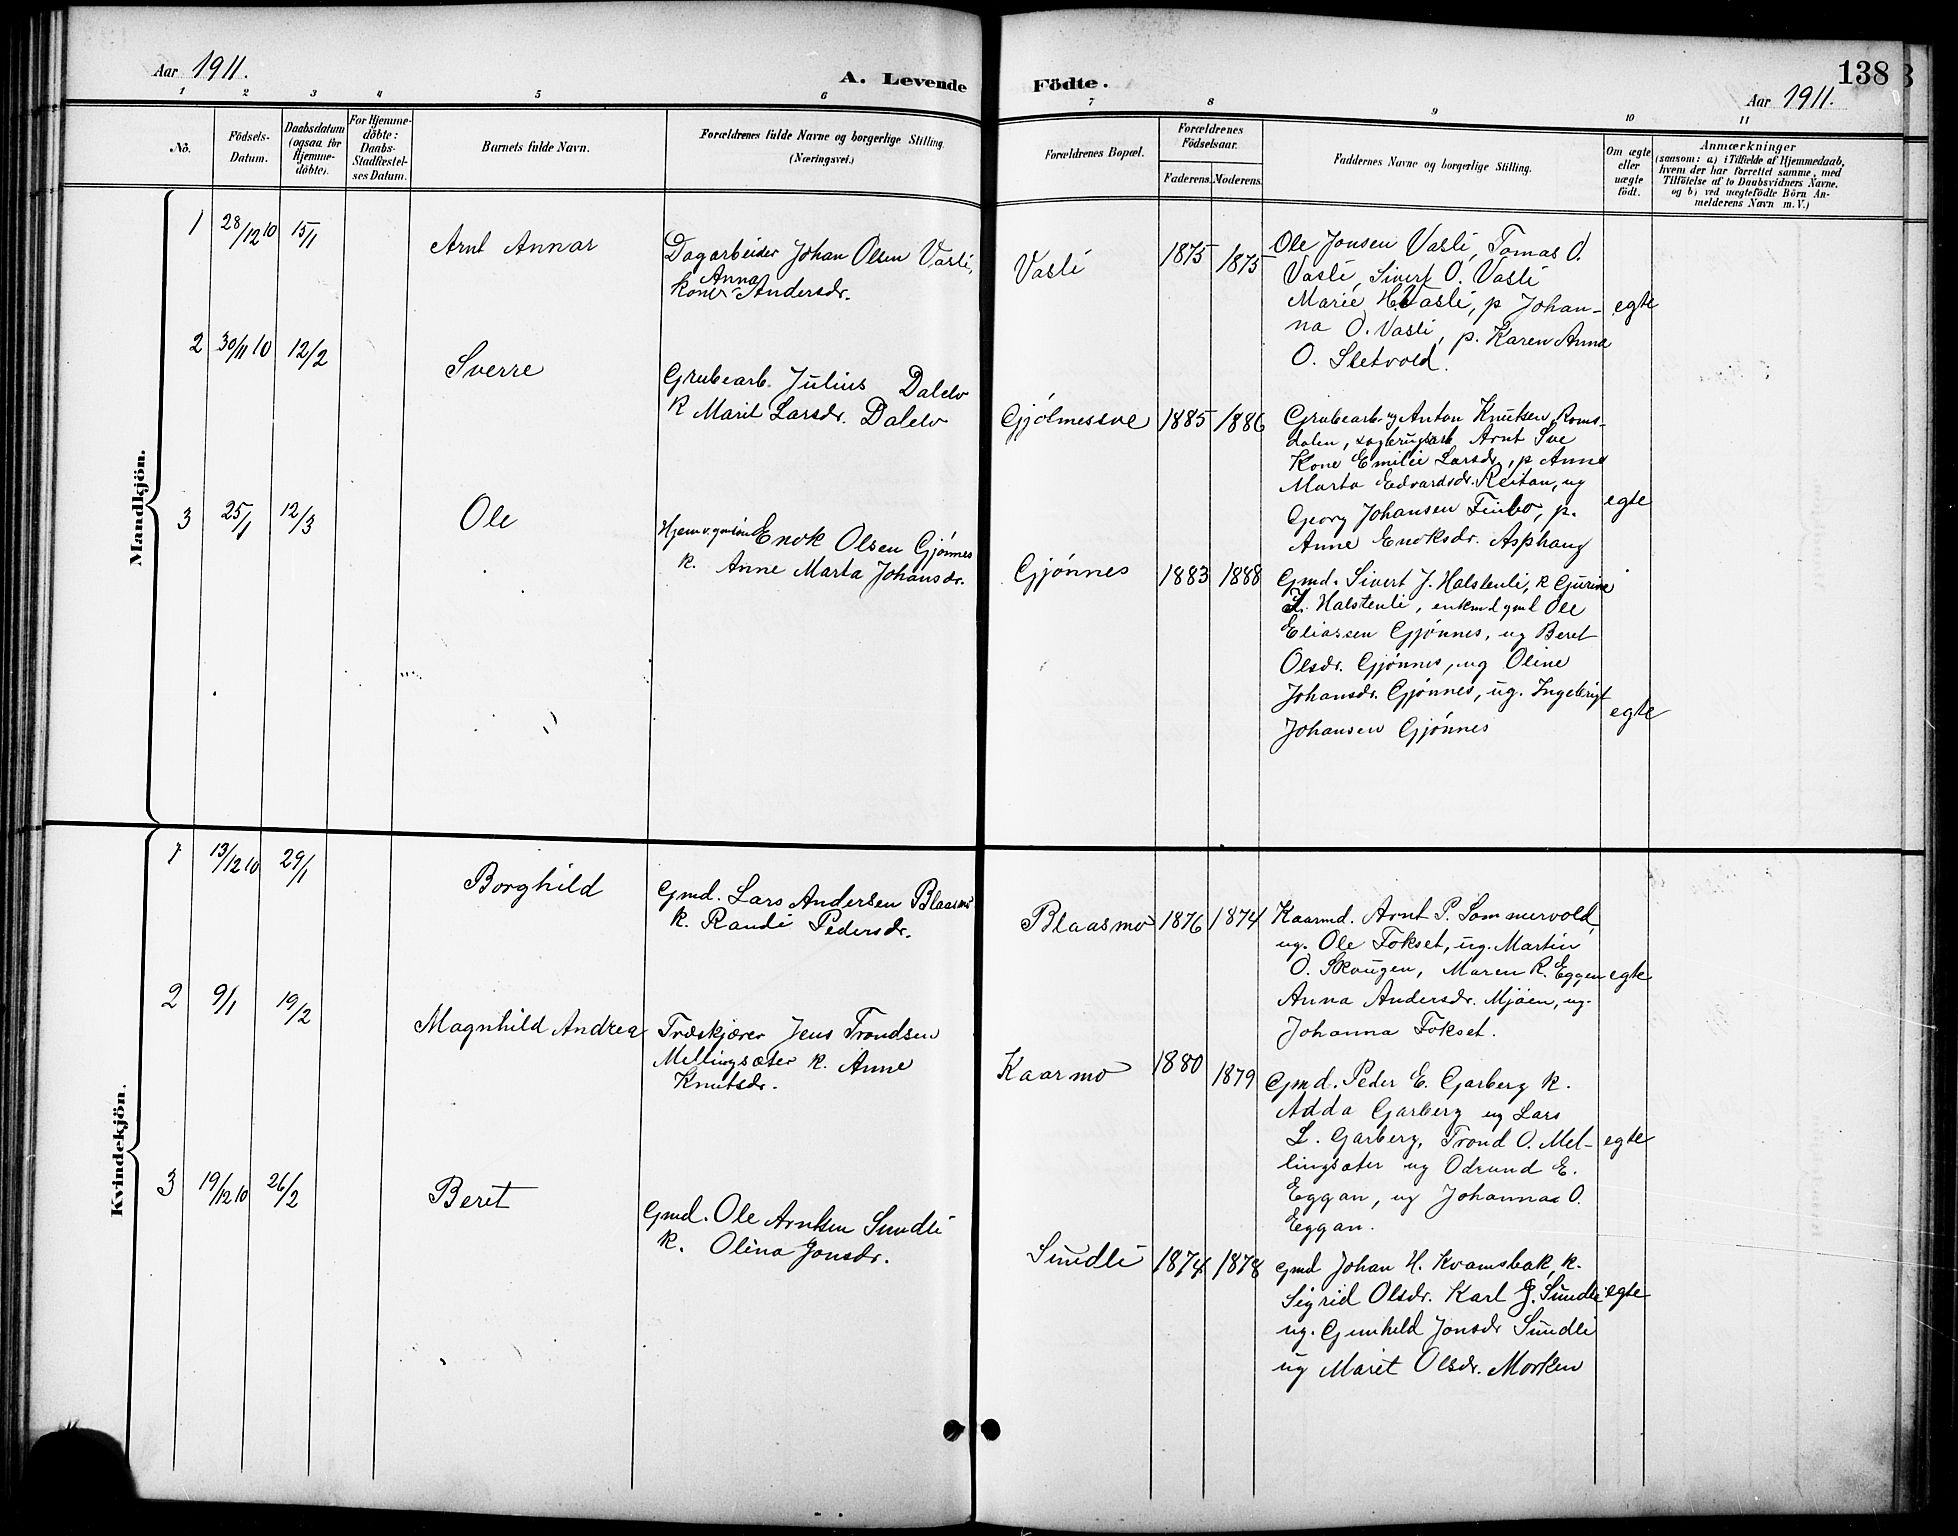 Aar 1911.
A. Levende
Födte.
138
Aar 1911.
1 2 3 4 5 6 7 8 9 10 11
No.
Födsels-
Datum.
Daabsdatum
(ogsaa for
Hjemme-
döbte).
For Hjemme-
döbte:
Daabs-
Stadfæstel-
ses Datum.
Barnets fulde Navn.
Forældrenes fulde Navne og borgerlige Stilling.
(Næringsvei.)
Forældrenes Bopæl.
Forældrenes
Födselsaar.
Faderens. Moderens.
Faddernes Navne og borgerlige Stilling.
Om ægte
eller
uægte
födt.
Anmærkninger
(saasom: a) i Tilfælde af Hjemmedaab,
hvem der har forrettet samme, med
Tilföielse af to Daabsvidners Navne.
og b) ved uægtefödte Börn An-
melderens Navn m. V.)
Mandkjön.
1 28/12 10 15/1
Arnt Annar
Dagarbeider Johan Olsen Vasli,
Anna
kone Andersdr.
Vasli
1875 1875
Ole Jonsen Vasli, Tomas O.
Vasli, Sivert O. Vasli
Marie H. Vasli, p Johan-
na O. Vasli, p. Karen Anna
O. Sletvold.
egte
2 30/11 10 12/2
Sverre
Grubearb. Julius Dalelv
k Marit Larsdr. Dalelv
Gjölmessve
1885 1886
Grubearb. ug Anton Knutsen, Roms-
dalen, sagbrugsarb Arnt Sve
Kone Emilie Larsdr, p Anne
Marta Edvardsdr. Reitan, ug
Georg Johansen Finbo, p.
Anne Enoksdr. Asphaug
egte
3 25/1 12/3
Ole
Enok Olsen Gjønnes
k. Anne Marta Johansdr.
Gjønnes
1883 1888
Gmd. Sivert J. Halstenli, k Gurine
L. Halstenli, enkmd gml Ole
Eliassen Gjønnes, ug Beret
Olsdr. Gjønnes, ug Oline
Johansdr. Gjønnes, ug. Ingebrigt
Johansen Gjønnes
egte
Kvindekjön.
1 13/12 10 29/1
Borghild
Gmd. Lars Andersen Blaasmo
k. Randi Pedersdr.
Blaasmo
1876 1874
Kaarmd. Arnt P. Sommervold,
ug. Ole Fokset, ug. Martin
O. Skougen, Maren R. Eggen
Anna Andersdr. Mjøen, ug.
Johanna Fokset.
egte
2 9/1 19/2
Magnhild Andrea
Træskjærer Jens Trondsen
Mellingsæter k. Anne
Knutsdr.
Kaarmo
1880 1879
Gmd. Peder E. Garberg k.
Adda Garberg ug Lars
L. Garberg, Trond O. Mel-
lingsæter ug Odrund E.
Eggan, ug Johannas O.
Eggan.
egte
3 19/12 10 26/2
Beret
Gmd. Ole Arntsen Sundli
k. Olina Jonsdr.
Sundli
1874 1878
gmd Johan H. Kvamsbak, k.
Sigrid Olsdr. Karl J. Sundli
ug. Gunhild Jonsdr Sundli
ug Marit Olsdr. Morken
egte